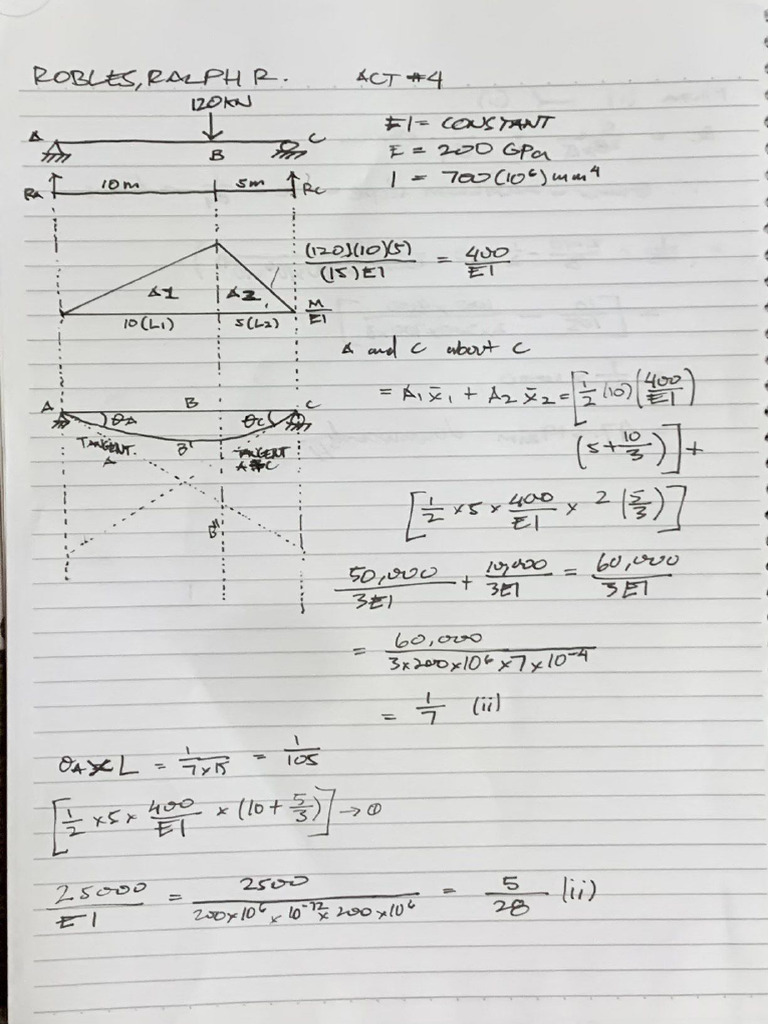 ROBLES, RALPH R. ACT #4
120KN
A B C
EI = CONSTANT
E = 200 GPa
I = 700(10⁶)mm⁴
RA 10m 5m RC
(120)(10)(5) / (15)EI = 400 / EI
A1 A2
M / EI
10(L1) 5(L2)
A and C about C
= A₁x̄₁ + A₂x̄₂ = [1/2 (10) (400/EI)
(5+10/3)] +
A θA B θC C
TANGENT A B' TANGENT C
B"
[1/2 × 5 × 400/EI × 2 (5/3)]
50,000/3EI + 10,000/3EI = 60,000/3EI
= 60,000 / 3×200×10⁶×7×10⁻⁴
= 1/7 (ii)
θA × L = 1/7×15 = 1/105
[1/2 × 5 × 400/EI × (10 + 5/3)] → ①
25000/EI = 2500 / 200×10⁶ × 10⁻¹² × 200×10⁶ = 5/28 (ii)